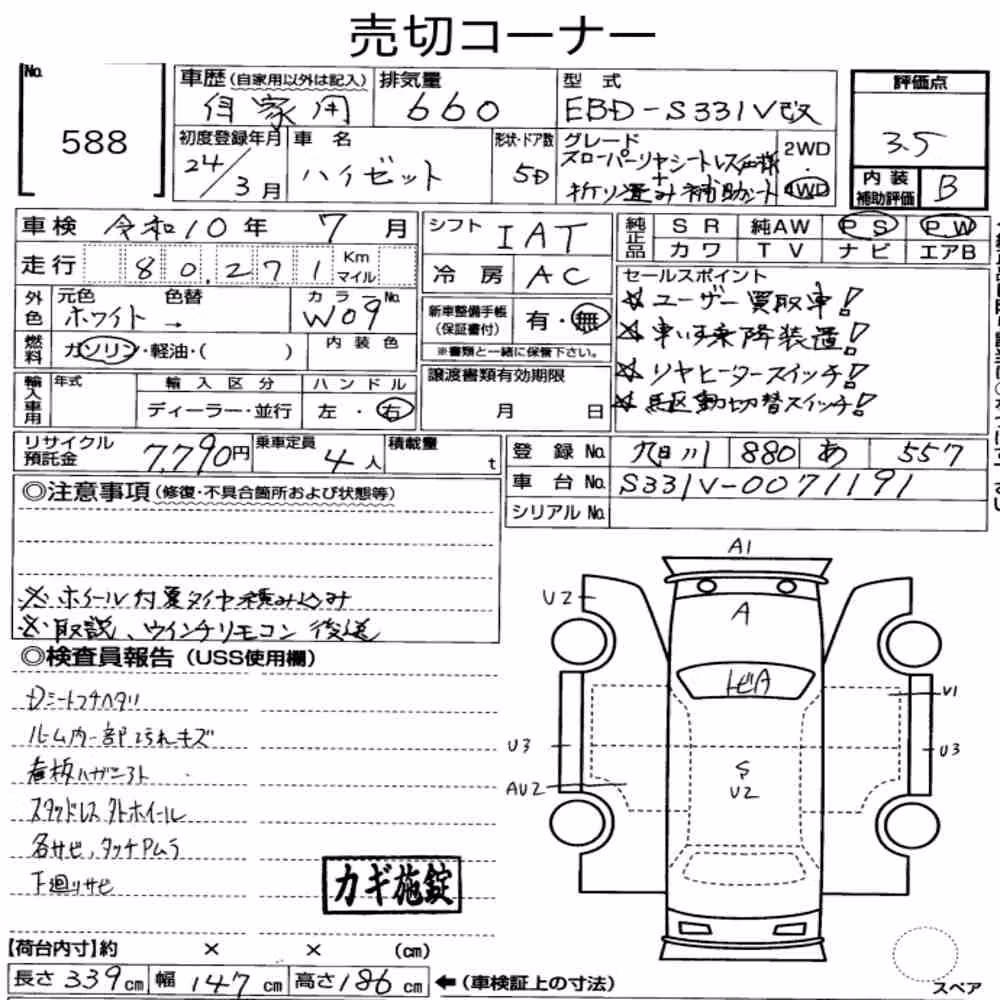 売切コーナー
No. 588
車歴 (自家用以外は記入) 自家用
排気量 660
型式 EBD-S331V改
評価点 3.5
内装補助評価 B
初度登録年月 24/3月
車名 ハイゼット
形状・ドア数 5D
グレード スローパーリヤシートレス仕様
+
折り畳み補助シート
2WD
4WD
車検 令和10年 7月
走行 80,271 Km マイル
外色 元色 ホワイト 色替 →
カラーNo. W09
燃料 ガソリン・軽油・( )
内装色
輸入車用 年式 輸入区分 ハンドル
ディーラー・並行 左・右
シフト IAT
冷房 AC
新車整備手帳(保証書付) 有・無
※書類と一緒に保管下さい。
譲渡書類有効期限
月 日
純正品 SR 純AW PS PW
カワ TV ナビ エアB
セールスポイント
☆ユーザー買取車!
☆車いす乗降装置!
☆リヤヒータースイッチ!
☆馬区動切替スイッチ!
リサイクル預託金 7,790円
乗車定員 4人
積載量 t
登録No. 旭川 880 あ 557
車台No. S331V-0071191
シリアルNo.
◎注意事項 (修復・不具合箇所および状態等)
※ホイール付夏タイヤ積み込み
※取説、ウインチリモコン後送
◎検査員報告 (USS使用欄)
Dシートフチヘタリ
ルーム内一部ヨゴれキズ
看板ハガシアト
スタッドレス外ホイール
各サビ、タッチPムラ
下廻りサビ
カギ施錠
A1
U2
A
トビA
U1
U3
U3
S
U2
AU2
スペア
【荷台内寸】約 × × (cm)
長さ 339cm 幅 147cm 高さ 186cm ←(車検証上の寸法)